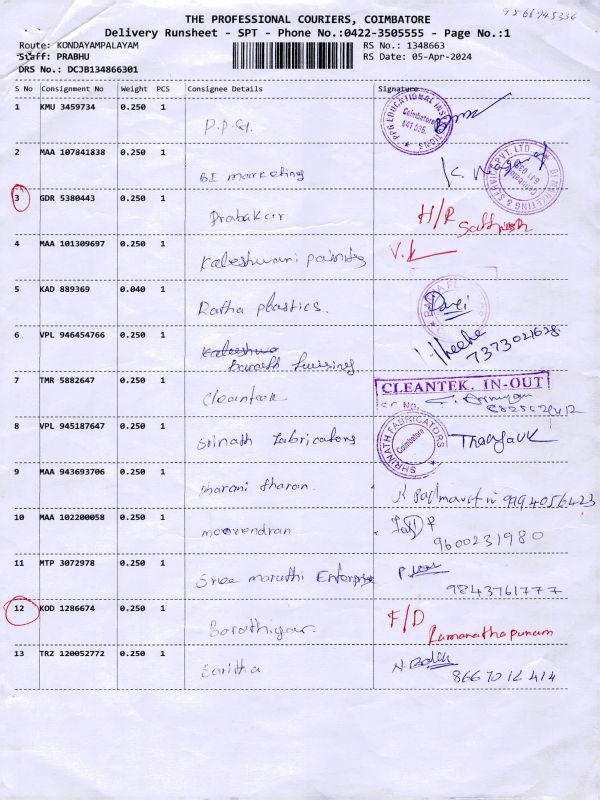 9566945336
THE PROFESSIONAL COURIERS, COIMBATORE
Delivery Runsheet - SPT - Phone No.:0422-3505555 - Page No.:1
Route: KONDAYAMPALAYAM
RS No.: 1348663
Staff: PRABHU
RS Date: 05-Apr-2024
DRS No.: DCJB134866301
S No Consignment No Weight PCS Consignee Details Signature
1 KMU 3459734 0.250 1 P.P.G.
PPG EDUCATIONAL INSTITUTIONS Coimbatore 641 035.
2 MAA 107841838 0.250 1 BI marketing
BI MARKETING & SERVICES PVT. LTD.
3 GDR 5380443 0.250 1 Prabakar H/R
Sathish
4 MAA 101309697 0.250 1 Kaleshwari painting V.K
5 KAD 889369 0.040 1 Ratha plastics.
6 VPL 946454766 0.250 1 Kaleeshwa
7373021628
7 TMR 5882647 0.250 1 Cleantek CLEANTEK. IN-OUT
SR NO.
8 VPL 945187647 0.250 1 Srinath Fabricators
SHRINATH FABRICATORS Coimbatore
9 MAA 943693706 0.250 1 Dharani Dharan K Padmavathi 9994056423
10 MAA 102200058 0.250 1 moovendran
9600231980
11 MTP 3072978 0.250 1 Sree maruthi Enterprise
9843761777
12 KOD 1286674 0.250 1 Barathiyar. F/D
Ramanathapuram
13 TRZ 120052772 0.250 1 Saritha
8667012414